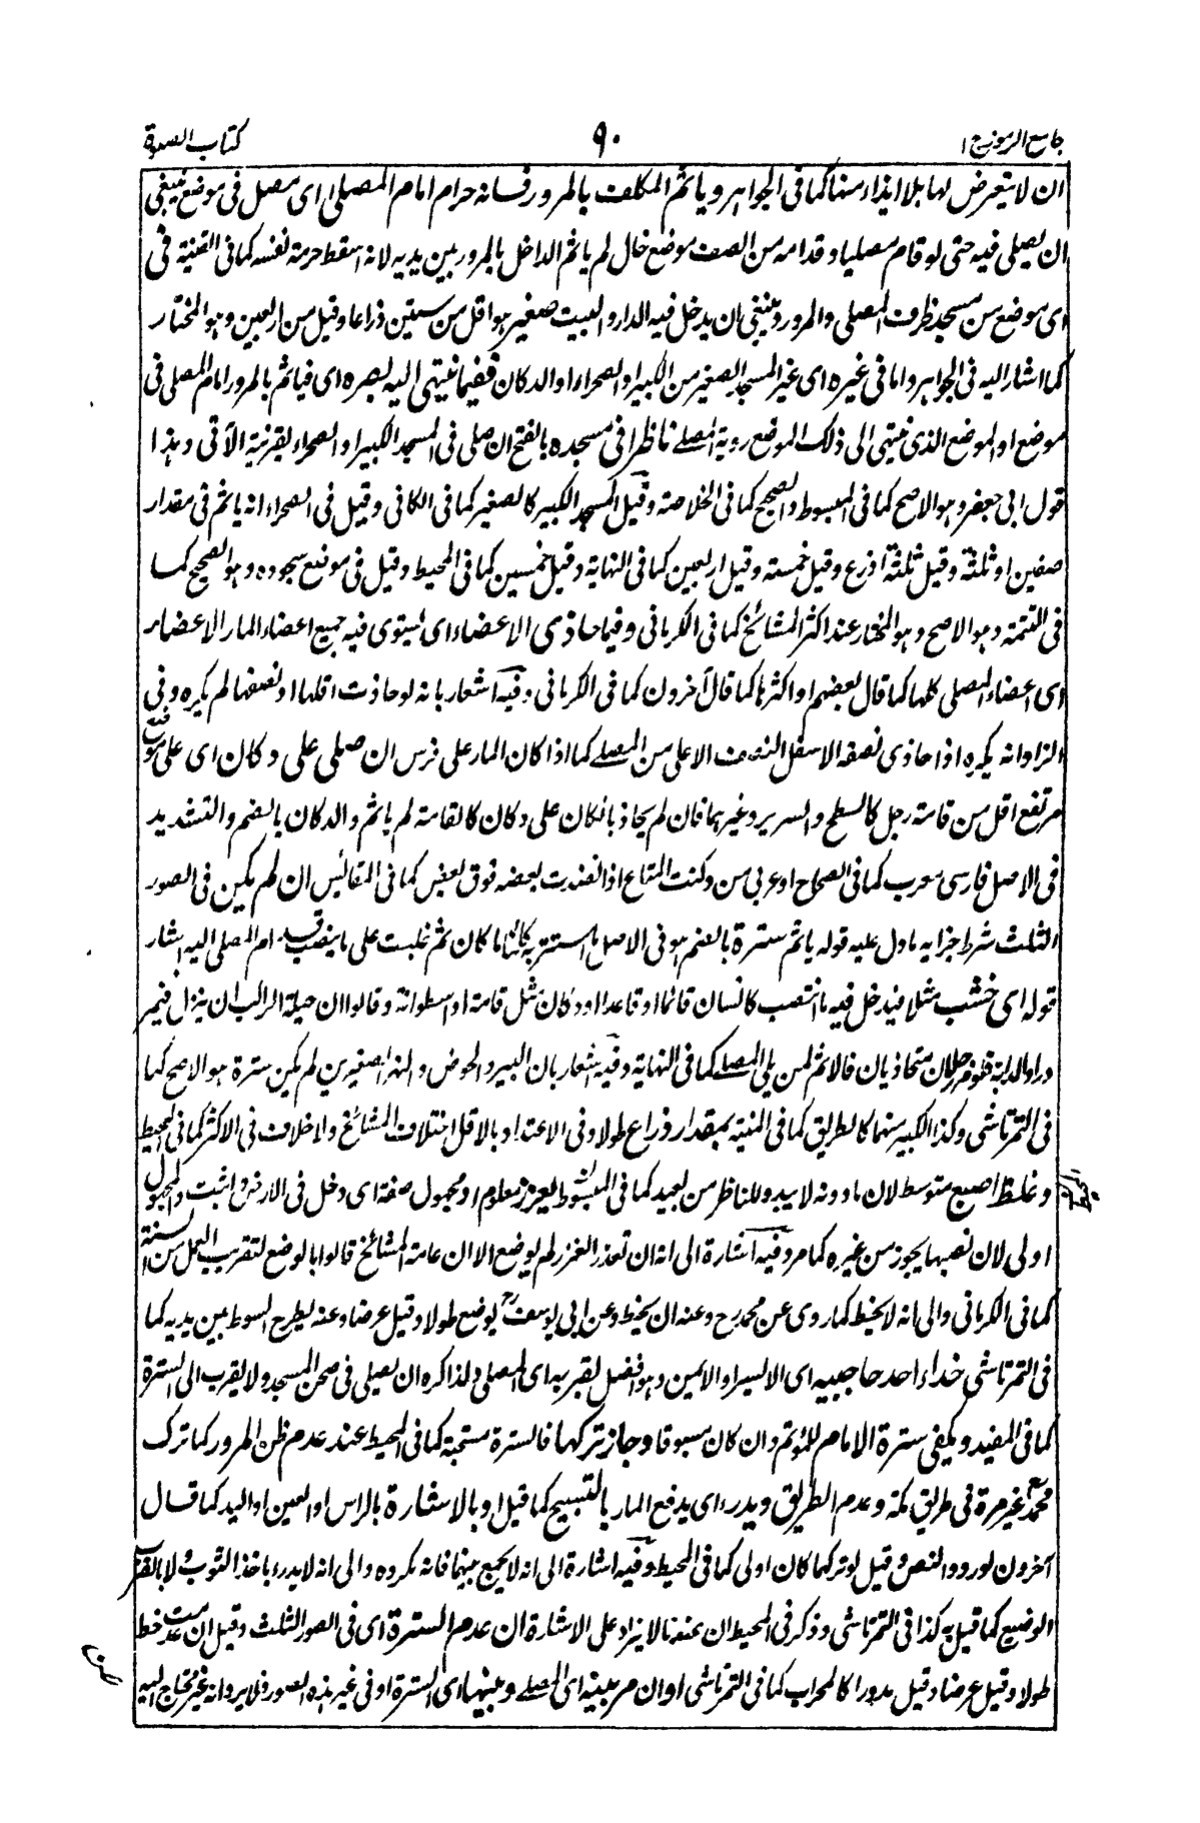 جامع الرموز ج ١
٩٠
كتاب الصلوة
ان لا يتعرض لها بلا ايذاء منها كما فى الجواهر و ياثم المكلف بالمرور فسانه حرام امام المصلى اى مصل فى موضع ينبغى
ان يصلى فيه حتى لو قام مصليا و قدامه من الصف موضع خال لم ياثم الداخل بالمرور بين يديه لانه اسقط حرمة نفسه كما فى القنية فى
اى موضع من مسجد ظرف المصلى والمرور وينبغى ان يدخل فيه الدار والبيت صغير هو اقل من ستين ذراعا وقيل من اربعين وهو المختار
كما اشار اليه فى الجواهر واما فى غيره اى غير المسجد الصغير من الكبير او الصحراء او الدكان ففيما ينتهى اليه بصره اى فياثم بالمرور امام المصلى فى
موضع او الموضع الذى ينتهى الى ذلك الموضع روية المصلى ناظرا فى مسجده بالفتح ان صلى فى المسجد الكبير او الصحراء بقرينة الآتى وهذا
قول ابى جعفر وهو الاصح كما فى المبسوط والصحيح كما فى الخلاصة وقيل المسجد الكبير كالصغير كما فى الكافى وقيل فى الصحراء انه ياثم فى مقدار
صفين او ثلثة وقيل ثلثة اذرع وقيل خمسة وقيل اربعين كما فى النهاية وقيل خمسين كما فى المحيط وقيل فى موضع سجوده وهو الصحيح كما
فى التتمة وهو الاصح وهو المختار عند اكثر المشائخ كما فى الكرمانى وفيما حاذى الاعضاء اى يستوى فيه جميع اعضاء المار الاعضاء
اى اعضاء المصلى كلها كما قال بعضهم او اكثرها كما قال آخرون كما فى الكرمانى وفيه اشعار بانه لو حاذت اقلها او نصفها لم يكره وفى
الزاد انه يكره اذا حاذى نصفه الاسفل النصف الاعلى من المصلى كما اذا كان المار على فرس ان صلى على دكان اى على موضع
مرتفع اقل من قامة رجل كالسطح والسرير وغيرهما فان لم يحاذ بان كان على دكان كالقامة لم ياثم والدكان بالضم والتشديد
فى الاصل فارسى معرب كما فى الصحاح او عربى من دكنت المتاع اذا نضدت بعضه فوق بعض كما فى المقائيس ان لم يكن فى الصور
الثلث شرط جزايه ما دل عليه قوله ياثم سترة بالضم هو فى الاصل ما يستتر به كائنا ما كان ثم غلبت على ما ينصب قدام المصلى اليه اشار
قوله اى خشب مثلا فيدخل فيه ما انتصب كانسان قائما او قاعدا او دكان مثل قامة او اسطوانة وقالوا ان حيلة الراكب ان ينزل فيمر
وراء الدابة فلو مر رجلان متحاذيان فالاثم لمن يلى المصلى كما فى النهاية وفيه اشعار بان البير والحوض والنهر الصغيرين لم يكن سترة هو الاصح كما
فى التمرتاشى وكذا الكبير منهما كالطريق كما فى المنية بمقدار ذراع طولا وفى الاعتداد بالاقل اختلاف المشائخ ولا خلاف فى الاكثر كما فى المحيط
وغلظ اصبع متوسط لان ما دونه لا يبدو للناظر من بعيد كما فى المبسوط يغرز معلوم او مجهول صفة اى دخل فى الارض واثبت والمجهول
اولى لان نصبها يجوز من غيره كما مر وفيه اشارة الى انه ان تعذر الغرز لم يوضع الا ان عامة المشائخ قالوا بالوضع لتقريب العمل من السنة
كما فى الكرمانى والى انه لا يخط كما روى عن محمد رح وعنه ان يخط وعن ابى يوسف رح يوضع طولا وقيل عرضا وعنه يطرح السوط بين يديه كما
فى التمرتاشى حذاء احد حاجبيه اى الايسر او الايمن وهو افضل بقربه اى المصلى ولذا كره ان يصلى فى صحن المسجد ولا يقرب الى السترة
كما فى المفيد ويكفى سترة الامام للمؤتم وان كان مسبوقا وجاز تركها فالسترة مستحبة كما فى المحيط عند عدم ظن المرور كما ترك
محمد رح غير مرة فى طريق مكة وعدم الطريق ويدرء اى يدفع المار بالتسبيح كما قيل او بالاشارة بالراس او العين او اليد كما قال
آخرون لورود النص وقيل لو تركها كان اولى كما فى المحيط وفيه اشارة الى انه لا يجمع بينهما فانه مكروه والى انه لا يدرء باخذ الثوب ولا بالضرب
الوضيع كما قيل به كذا فى التمرتاشى وذكر فى المحيط ان عندنا لا يزاد على الاشارة ان عدم السترة اى فى الصور الثلث وقيل ان عدمت خط
طولا وقيل عرضا وقيل مدورا كالمحراب كما فى التمرتاشى او ان مر بينه اى المصلى وبينها اى السترة او فى غير هذه الصور فلا يرد انه غير محتاج اليه